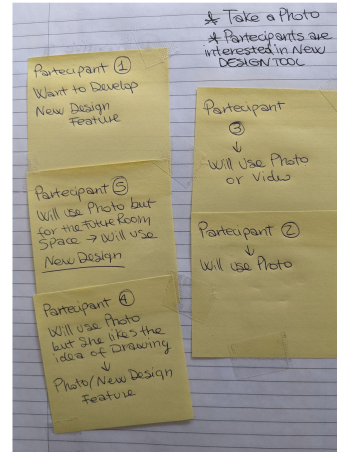 * Take a Photo
* Partecipants are
interested in New
DESIGN TOOL
Partecipant 1
Want to Develop
New Design
Feature
Partecipant 5
Will use Photo but
for the Future Room
Space → Will use
New Design
Partecipant 4
Will use Photo
but she likes the
idea of Drawing
↓
Photo/New Design
Feature
Partecipant
3
↓
Will use Photo
or Video
Partecipant 2
↓
Will use Photo